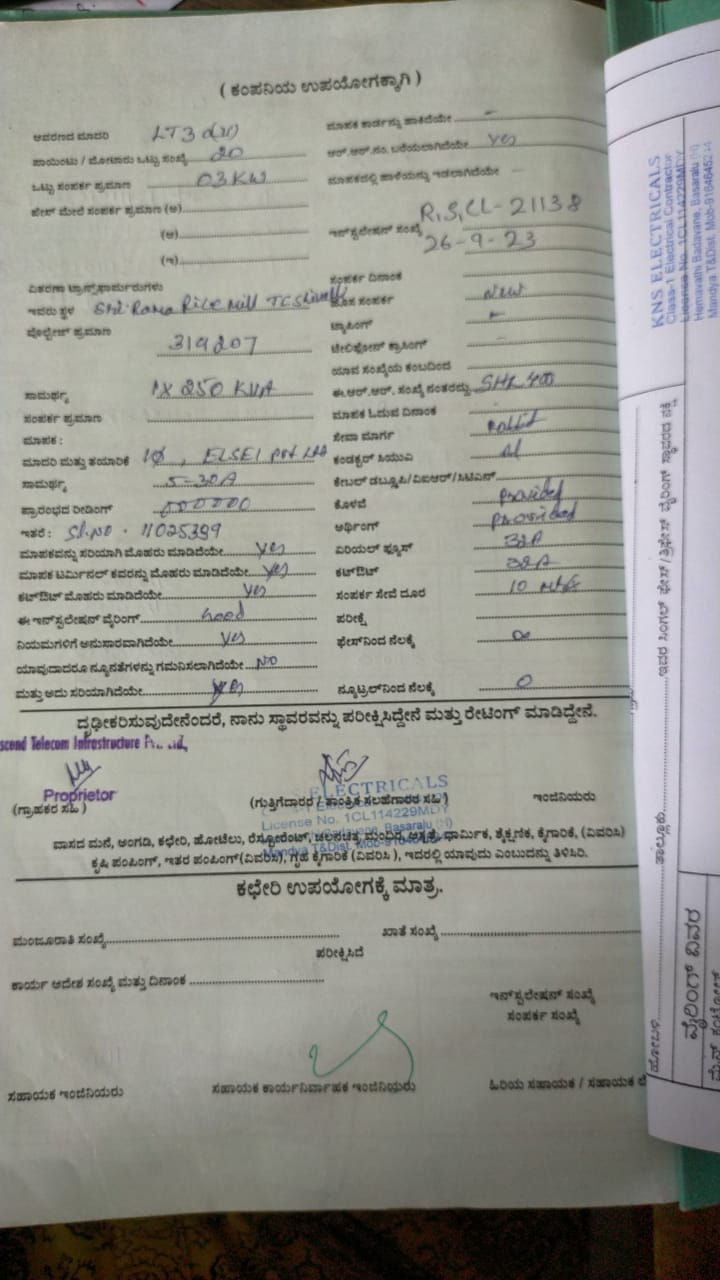 ( ಕಂಪನಿಯ ಉಪಯೋಗಕ್ಕಾಗಿ )
ಆವರಣದ ಮಾದರಿ LT3
ಪಾಯಿಂಟು / ಮೋಟಾರು ಒಟ್ಟು ಸಂಖ್ಯೆ 20
ಒಟ್ಟು ಸಂಪರ್ಕ ಪ್ರಮಾಣ 03 KW
ಫೇಸ್ ಮೇಲೆ ಸಂಪರ್ಕ ಪ್ರಮಾಣ (ಅ)
(ಆ)
(ಇ)
ವಿತರಣಾ ಟ್ರಾನ್ಸ್‌ಫಾರ್ಮರುಗಳು
ಇರುವ ಸ್ಥಳ Shri Rama Rice Mill TC
ವೋಲ್ಟೇಜ್ ಪ್ರಮಾಣ
319207
ಸಾಮರ್ಥ್ಯ 1X 250 KVA
ಸಂಪರ್ಕ ಪ್ರಮಾಣ
ಮಾಪಕ :
ಮಾದರಿ ಮತ್ತು ತಯಾರಿಕೆ 1Ø, Pvt Ltd
ಸಾಮರ್ಥ್ಯ 5-30A
ಪ್ರಾರಂಭದ ರೀಡಿಂಗ್ 000000
ಇತರೆ : Sl.no. 11025399
ಮಾಪಕವನ್ನು ಸರಿಯಾಗಿ ಮೊಹರು ಮಾಡಿದೆಯೇ Yes
ಮಾಪಕ ಟರ್ಮಿನಲ್ ಕವರನ್ನು ಮೊಹರು ಮಾಡಿದೆಯೇ Yes
ಕಟ್‌ಔಟ್ ಮೊಹರು ಮಾಡಿದೆಯೇ Yes
ಈ ಇನ್‌ಸ್ಟಲೇಷನ್ ವೈರಿಂಗ್ Good
ನಿಯಮಗಳಿಗೆ ಅನುಸಾರವಾಗಿದೆಯೇ Yes
ಯಾವುದಾದರೂ ನ್ಯೂನತೆಗಳನ್ನು ಗಮನಿಸಲಾಗಿದೆಯೇ NO
ಮತ್ತು ಅದು ಸರಿಯಾಗಿದೆಯೇ Yes
ಮಾಪಕ ಕಾರ್ಡನ್ನು ಹಾಕಿದೆಯೇ –
ಆರ್.ಆರ್.ನಂ. ಬರೆಯಲಾಗಿದೆಯೇ Yes
ಮಾಪಕದಲ್ಲಿ ಹಾಳೆಯನ್ನು ಇಡಲಾಗಿದೆಯೇ –
R.S,CL-21138
ಇನ್‌ಸ್ಟಲೇಷನ್ ಸಂಖ್ಯೆ 26-9-23
ಸಂಪರ್ಕ ದಿನಾಂಕ
ಹೊಸ ಸಂಪರ್ಕ New
ಟ್ಯಾಪಿಂಗ್ –
ಟೆಲಿಫೋನ್ ಕ್ರಾಸಿಂಗ್ –
ಯಾವ ಸಂಖ್ಯೆಯ ಕಂಬದಿಂದ
ಈ.ಆರ್.ಆರ್. ಸಂಖ್ಯೆ ನಂತರದ್ದು
ಮಾಪಕ ಓದುವ ದಿನಾಂಕ
ಸೇವಾ ಮಾರ್ಗ Rabbit
ಕಂಡಕ್ಟರ್ ಸಿಯುವಿ Al
ಕೇಬಲ್ ಡಬ್ಲ್ಯೂಪಿ/ವಿಐಆರ್/ಸಿಟಿಎಸ್
ಕೊಳವೆ Provided
ಅರ್ಥಿಂಗ್ Provided
ಏರಿಯಲ್ ಫ್ಯೂಸ್ 32A
ಕಟ್‌ಔಟ್ 32A
ಸಂಪರ್ಕ ಸೇವೆ ದೂರ 10 mtrs
ಪರೀಕ್ಷೆ
ಫೇಸ್‌ನಿಂದ ನೆಲಕ್ಕೆ ∞
ನ್ಯೂಟ್ರಲ್‌ನಿಂದ ನೆಲಕ್ಕೆ 0
ದೃಢೀಕರಿಸುವುದೇನೆಂದರೆ, ನಾನು ಸ್ಥಾವರವನ್ನು ಪರೀಕ್ಷಿಸಿದ್ದೇನೆ ಮತ್ತು ರೇಟಿಂಗ್ ಮಾಡಿದ್ದೇನೆ.
scend Telecom Infrastructure Pvt. Ltd,
Proprietor
(ಗ್ರಾಹಕರ ಸಹಿ )
KNS ELECTRICALS
(ಗುತ್ತಿಗೆದಾರರ / ತಾಂತ್ರಿಕ ಸಲಹೆಗಾರರ ಸಹಿ )
ಇಂಜಿನಿಯರು
License No. 1CL114229MDY
ವಾಸದ ಮನೆ, ಅಂಗಡಿ, ಕಛೇರಿ, ಹೋಟೆಲು, ರೆಸ್ಟೋರೆಂಟ್, ಚಲನಚಿತ್ರ, ಮಂದಿರ, ಆಸ್ಪತ್ರೆ, ಧಾರ್ಮಿಕ, ಶೈಕ್ಷಣಿಕ, ಕೈಗಾರಿಕೆ, (ವಿವರಿಸಿ)
ಕೃಷಿ ಪಂಪಿಂಗ್, ಇತರ ಪಂಪಿಂಗ್(ವಿವರಿಸಿ), ಗೃಹ ಕೈಗಾರಿಕೆ (ವಿವರಿಸಿ ), ಇದರಲ್ಲಿ ಯಾವುದು ಎಂಬುದನ್ನು ತಿಳಿಸಿರಿ.
ಕಛೇರಿ ಉಪಯೋಗಕ್ಕೆ ಮಾತ್ರ.
ಮಂಜೂರಾತಿ ಸಂಖ್ಯೆ
ಖಾತೆ ಸಂಖ್ಯೆ
ಪರೀಕ್ಷಿಸಿದೆ
ಕಾರ್ಯ ಆದೇಶ ಸಂಖ್ಯೆ ಮತ್ತು ದಿನಾಂಕ
ಇನ್‌ಸ್ಟಲೇಷನ್ ಸಂಖ್ಯೆ
ಸಂಪರ್ಕ ಸಂಖ್ಯೆ
ಸಹಾಯಕ ಇಂಜಿನಿಯರು
ಸಹಾಯಕ ಕಾರ್ಯನಿರ್ವಾಹಕ ಇಂಜಿನಿಯರು
ಹಿರಿಯ ಸಹಾಯಕ / ಸಹಾಯಕ ಲೆ
KNS ELECTRICALS
Class-1 Electrical Contractor
License No. 1CL114229MDY
Hemavathi Badavane, Basaralu (H)
Mandya T&Dist. Mob-
ಇವರ ಸಿಂಗಲ್ ಫೇಸ್/ತ್ರಿಫೇಸ್ ವೈರಿಂಗ್ ಸ್ಥಾವರದ ನಕ್ಷೆ
ತಾಲ್ಲೂಕು
ಹೋಬಳಿ
ವೈರಿಂಗ್ ವಿವರ